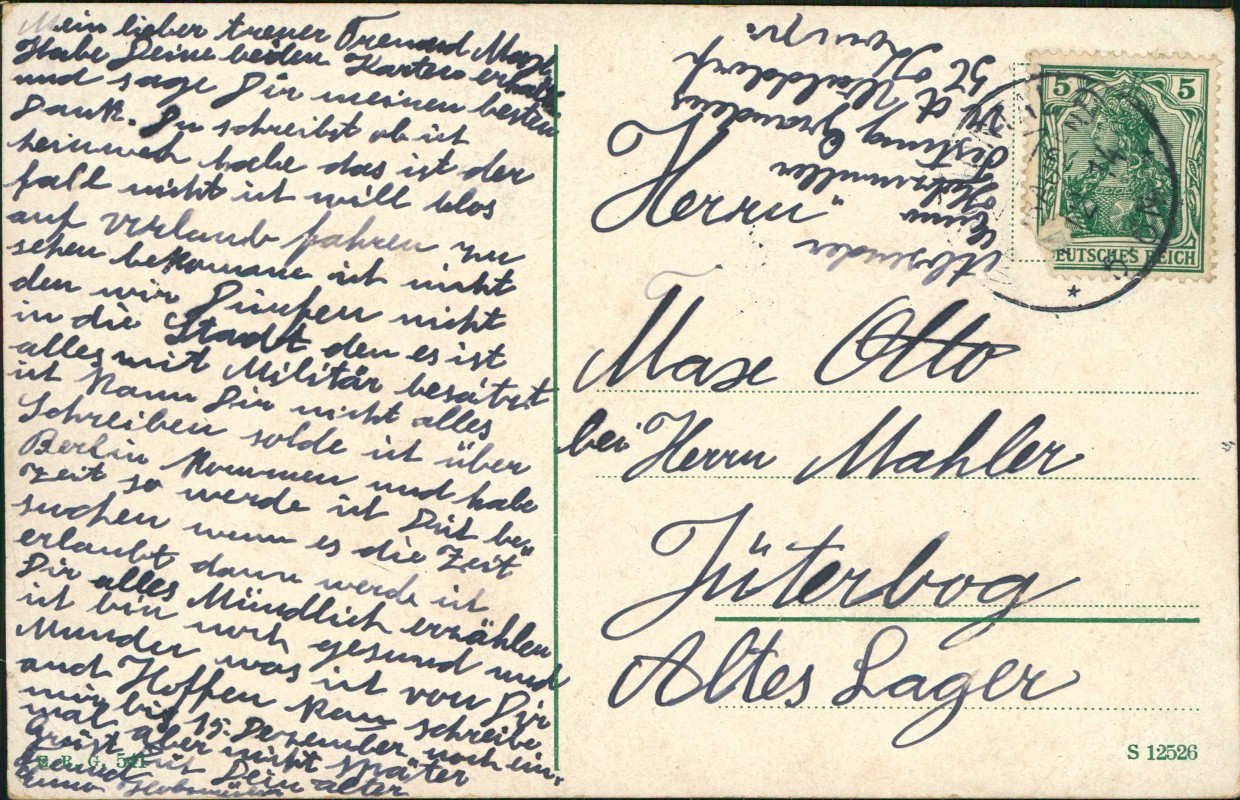 Mein lieber treuer Freund Max
Habe Deine beiden Karten erhalten
und sage Dir meinen besten
Dank. Du schreibst ob ich
heimweh habe das ist der
fall nicht ich will blos
auf verlaub fahren zu
sehen bekomme ich nicht
den wir Dürfen nicht
in die Stadt den es ist
alles mit Militär besätzt
ich kann Dir nicht alles
Schreiben solde ich über
Berlin kommen und habe
Zeit so werde ich Dich be"
suchen wenn es die Zeit
erlaubt dann werde ich
Dir alles Mündlich erzählen
ich bin noch gesund und
Munder was ich von Dir
auch Hoffen kan schreibe
mir bis 15. Dezember noch ein"
mal aber nicht später
Grüst Dein alter
Freund
5
5
DEUTSCHES REICH
Absender
Festung Graudenz
Herrn"
Max Otto
bei Herrn Mahler
Jüterbog
Altes Lager
S 12526